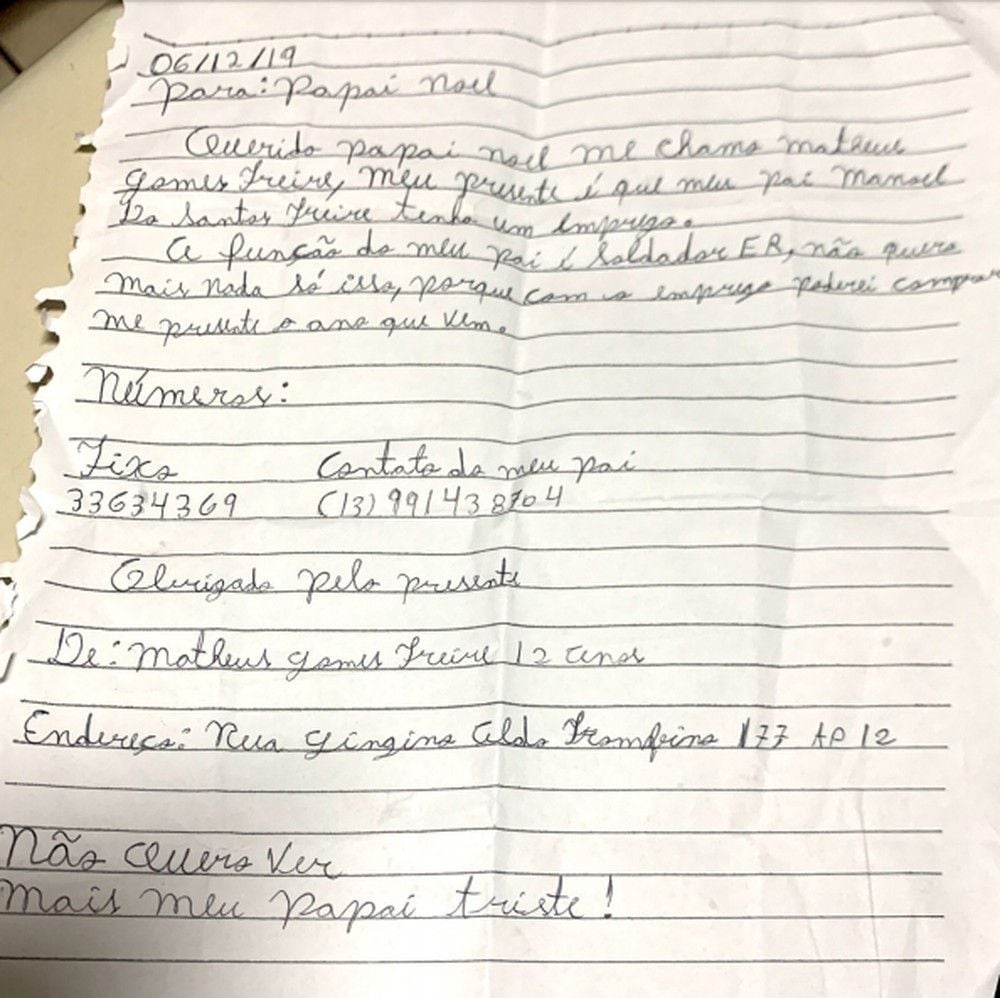 06/12/19
Para: Papai Noel
Querido papai noel me chamo matheus
gomes Freire, meu presente é que meu pai Manoel
Do Santos Freire tenha um emprego.
A função do meu pai é Soldador ER, não quero
mais nada só isso, porque com o emprego poderei comprar
me presente o ano que vem.
Números:
Fixo Contato do meu pai
33634369 (13) 991438704
Obrigado pelo presente
De: Matheus gomes Freire 12 anos
Endereço: Rua 177 AP 12
Não Quero Ver
Mais meu papai triste!